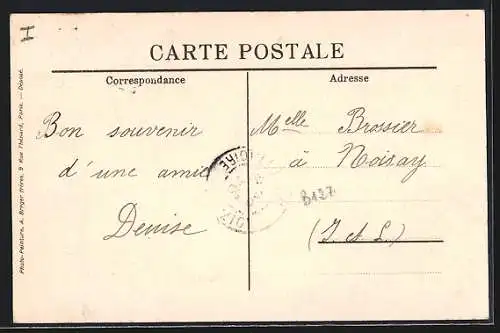 I
CARTE POSTALE
Correspondance
Adresse
Bon souvenir
d'une amie
Denise
Melle Brossier
à Noizay
B127
(I. et L.)
Photo-Peinture, A. Breger frères, 9 Rue Thénard, Paris. — Déposé.